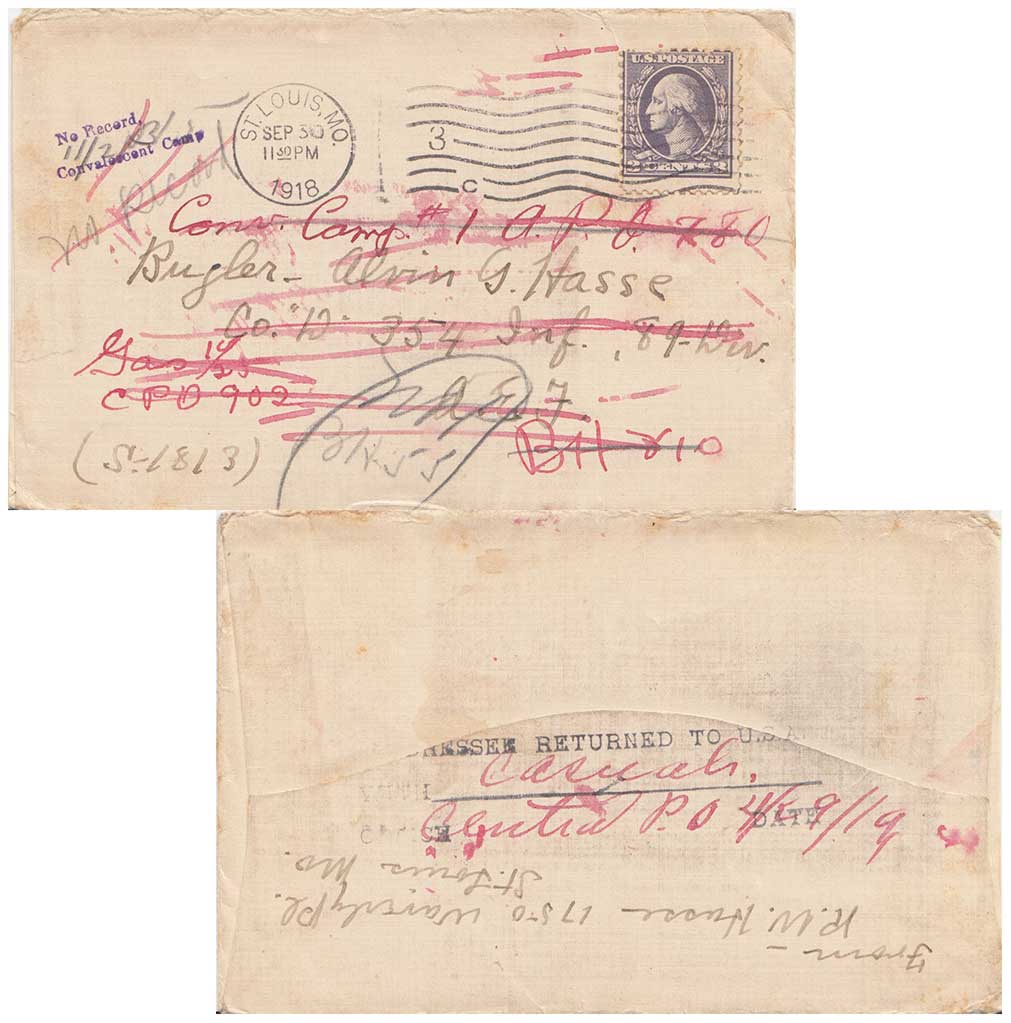 No Record,
Convalescent Camp
11/2
no record
ST. LOUIS, MO.
SEP 30
11 30 PM
1918
3
C
U.S. POSTAGE
3 CENTS 3
Conv. Camp. #1 A.P.O. 780
Bugler- Alvin G. Hasse
Co. "D" 354 Inf., 89-Div.
Gas
C P O 902
A.E.F.
BH 55
BH 210
RESSEE RETURNED TO U.S.A
Casuals,
Central P.O 4/29/19
DATE
From -
R.W. Hasse - 1750 Waverly Pl.
St. Louis Mo.